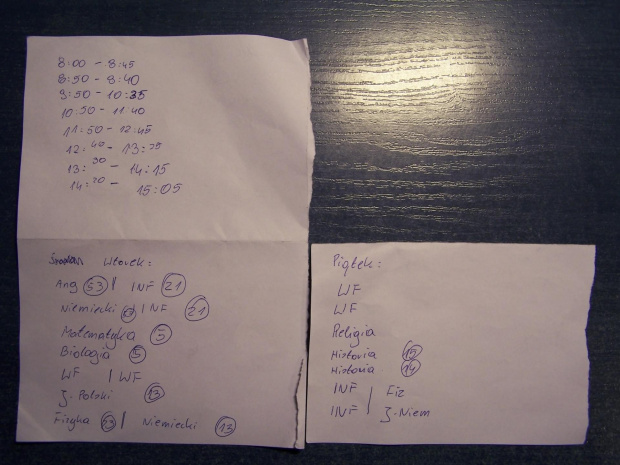 8:00 - 8:45
8:50 - 8:40
9:50 - 10:35
10:50 - 11:40
11:50 - 12:45
12:40 - 13:25
13:30 - 14:15
14:20 - 15:05
Wtorek:
Ang 53 | INF 21
Niemiecki | INF 21
Matematyka 5
Biologia 5
WF | WF
J. Polski 13
Fizyka 53 | Niemiecki 13
Piątek:
WF
WF
Religia
Historia 15
Historia 14
INF | Fiz
INF | J-Niem